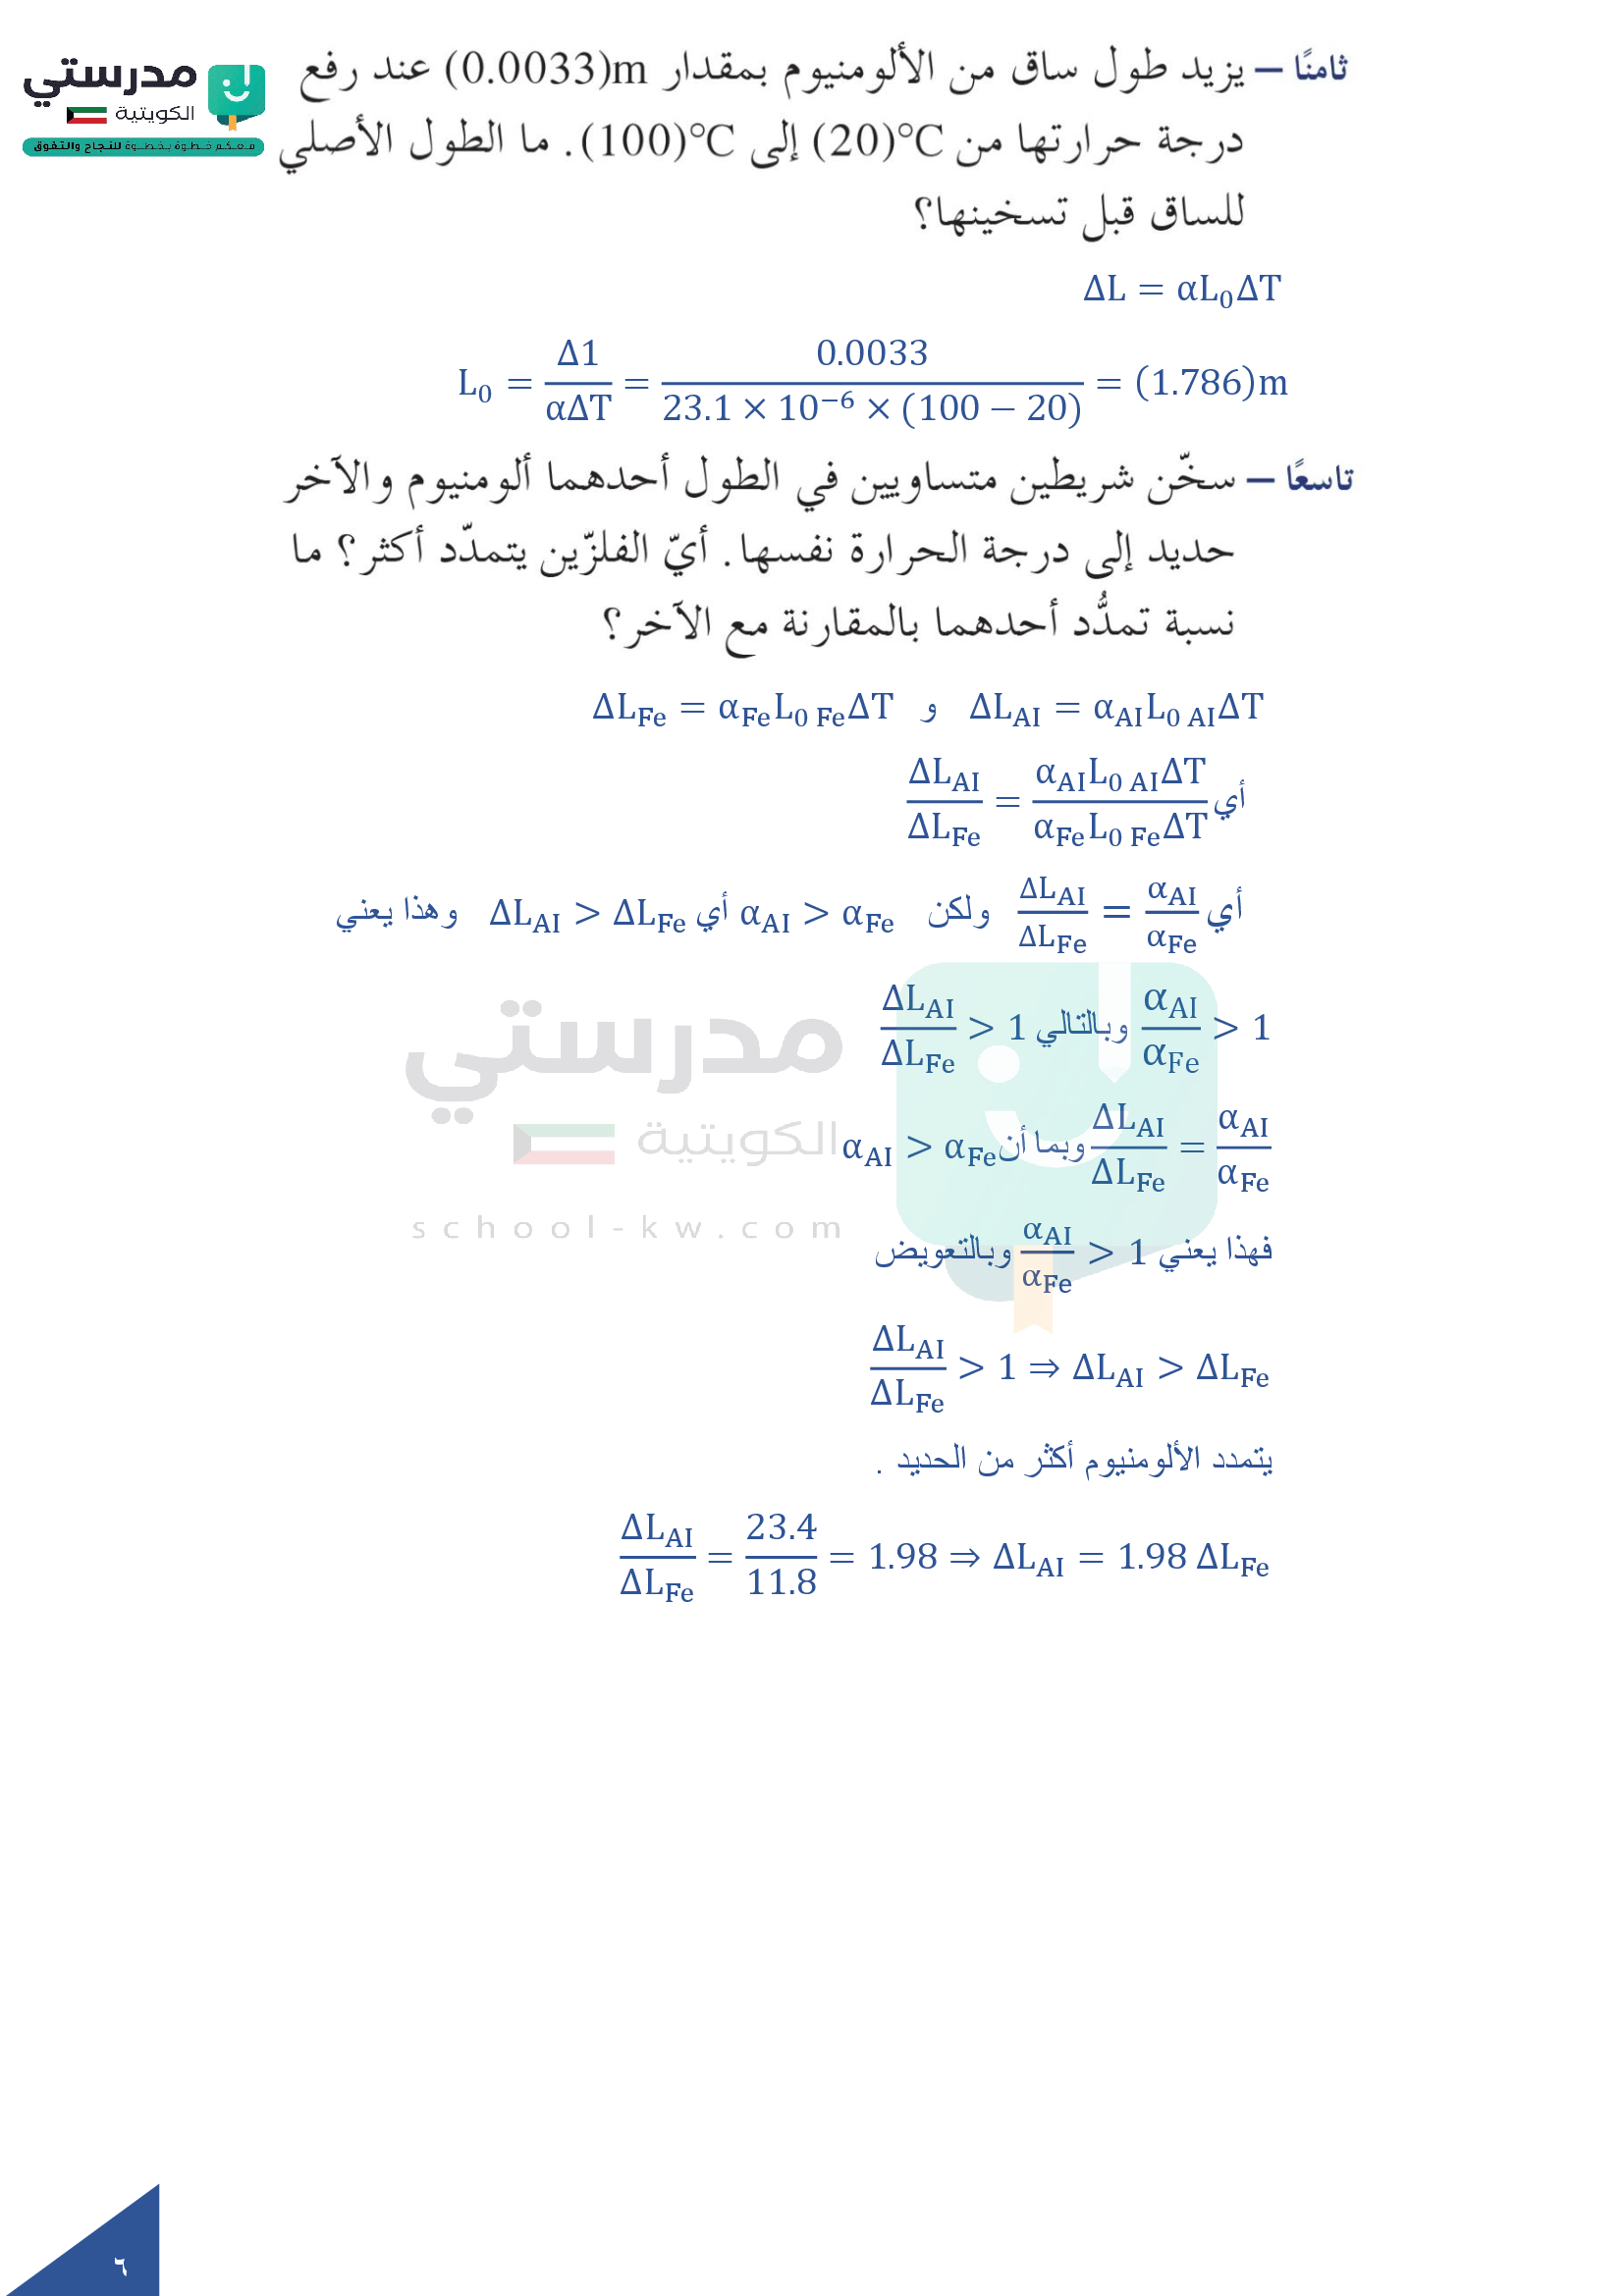 مدرستي
الكويتية
معكم خطوة بخطوة للنجاح والتفوق
ثامنًا – يزيد طول ساق من الألومنيوم بمقدار (0.0033)m عند رفع
درجة حرارتها من (20)°C إلى (100)°C. ما الطول الأصلي
للساق قبل تسخينها؟
ΔL = αL₀ΔT
L₀ = Δ1/αΔT = 0.0033/23.1 × 10⁻⁶ × (100 − 20) = (1.786)m
تاسعًا – سخّن شريطين متساويين في الطول أحدهما ألومنيوم والآخر
حديد إلى درجة الحرارة نفسها. أيّ الفلزّين يتمدّد أكثر؟ ما
نسبة تمدُّد أحدهما بالمقارنة مع الآخر؟
ΔL_AI = α_AI L₀ AI ΔT و ΔL_Fe = α_Fe L₀ Fe ΔT
أي ΔL_AI/ΔL_Fe = α_AI L₀ AI ΔT/α_Fe L₀ Fe ΔT
أي ΔL_AI/ΔL_Fe = α_AI/α_Fe ولكن α_AI > α_Fe أي ΔL_AI > ΔL_Fe وهذا يعني
α_AI/α_Fe > 1 وبالتالي ΔL_AI/ΔL_Fe > 1
ΔL_AI/ΔL_Fe = α_AI/α_Fe وبما أن α_AI > α_Fe
فهذا يعني α_AI/α_Fe > 1 وبالتعويض
ΔL_AI/ΔL_Fe > 1 ⇒ ΔL_AI > ΔL_Fe
يتمدد الألومنيوم أكثر من الحديد .
ΔL_AI/ΔL_Fe = 23.4/11.8 = 1.98 ⇒ ΔL_AI = 1.98 ΔL_Fe
مدرستي
الكويتية
school-kw.com